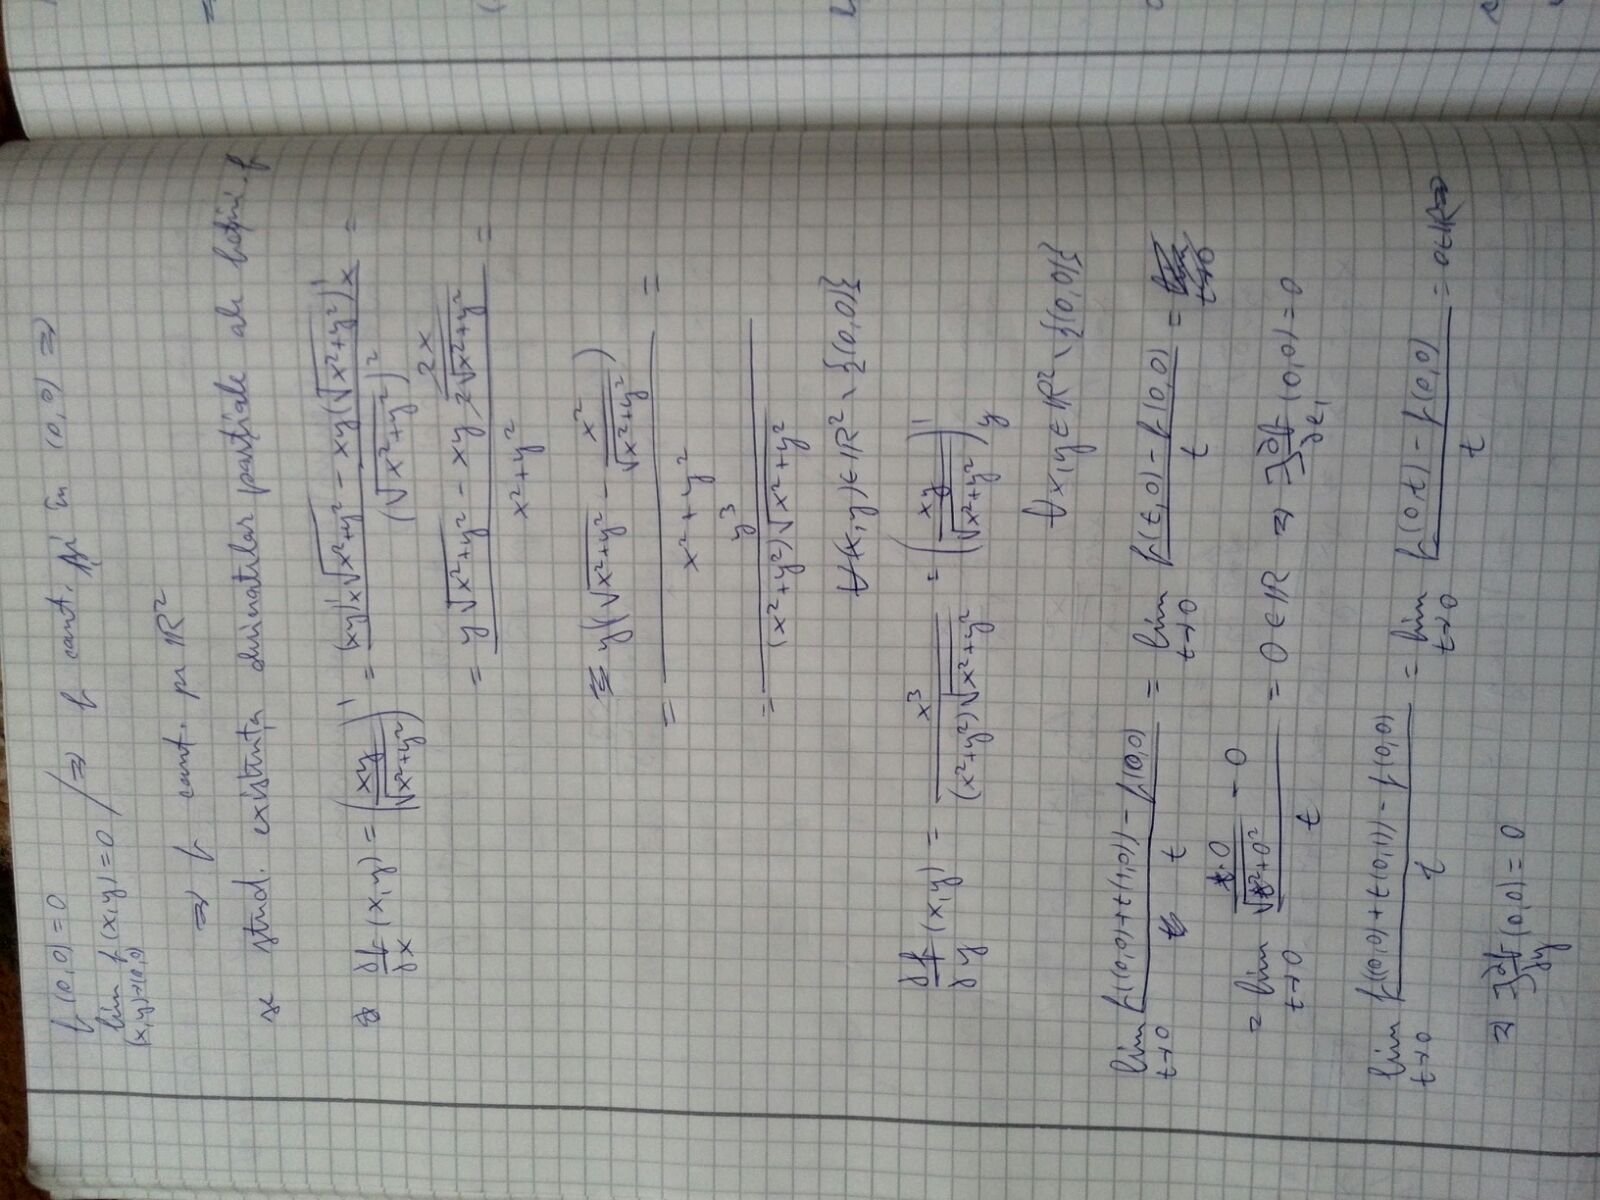 f(0,0) = 0
lim f(x,y) = 0 / ⇒ f cont. și în (0,0) ⇒
(x,y)→(0,0)
⇒ f cont. pe ℝ²
* stud. existența derivatelor parțiale ale funcției f
* ∂f/∂x (x,y) = (xy/√(x²+y²))' = ((xy)'ₓ√(x²+y²) - xy(√(x²+y²))'ₓ)/(√(x²+y²))² =
= (y√(x²+y²) - xy · 2x/(2√(x²+y²)))/(x²+y²) =
= y(√(x²+y²) - x²/√(x²+y²))/(x²+y²) =
= y³/((x²+y²)√(x²+y²))
∀(x,y)∈ℝ² \ {(0,0)}
∂f/∂y (x,y) = x³/((x²+y²)√(x²+y²)) = (xy/√(x²+y²))'_y
∀x,y∈ℝ² \ {(0,0)}
lim t→0 (f((0,0)+t(1,0)) - f(0,0))/t = lim t→0 (f(t,0) - f(0,0))/t =
= lim t→0 (t·0/√(t²+0²) - 0)/t = 0∈ℝ ⇒ ∃ ∂f/∂e₁ (0,0) = 0
lim t→0 (f((0,0)+t(0,1)) - f(0,0))/t = lim t→0 (f(0,t) - f(0,0))/t = 0∈ℝ ⇒
⇒ ∃ ∂f/∂y (0,0) = 0